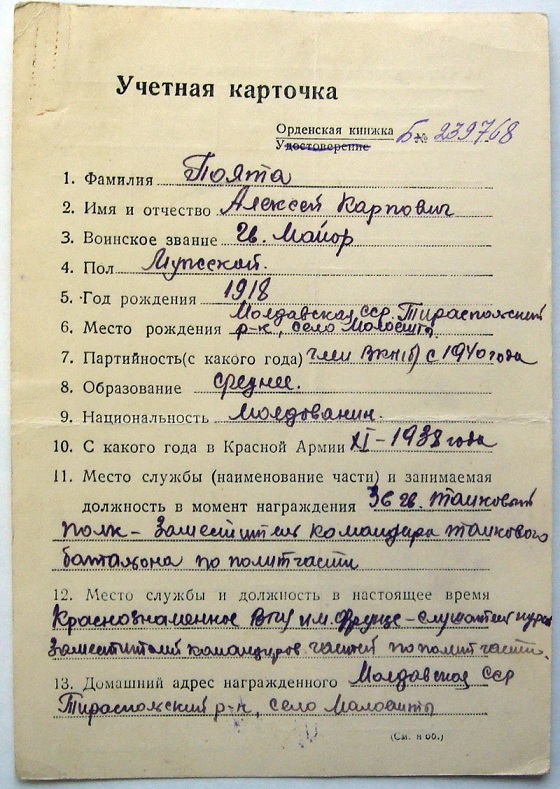 Учетная карточка
Орденская книжка Б № 239768
Удостоверение
1. Фамилия Поята
2. Имя и отчество Алексей Карпович
3. Воинское звание гв. Майор
4. Пол Мужской.
5. Год рождения 1918
Молдавская ССР. Тираспольский
6. Место рождения р-н, село Маловишта
7. Партийность (с какого года) член ВКП(б) с 1940 года
8. Образование среднее.
9. Национальность молдованин.
10. С какого года в Красной Армии XI – 1938 года
11. Место службы (наименование части) и занимаемая
должность в момент награждения 36 гв. танковый
полк – Заместитель командира танкового
батальона по политчасти
12. Место службы и должность в настоящее время
Краснознаменное ВПУ им. Фрунзе – слушатель курсов
заместителей командиров частей по политчасти.
13. Домашний адрес награжденного Молдавская ССР
Тираспольский р-н, село
(См. н об.)